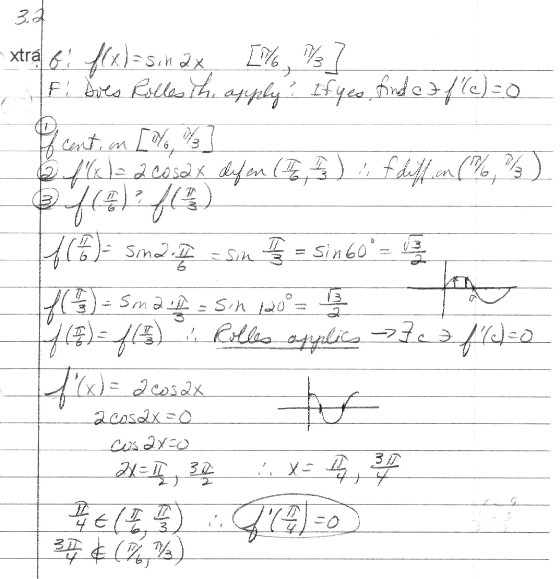 3.2
xtra G: f(x) = sin 2x [π/6, π/3]
F: Does Rolles Th. apply? If yes, find c ∋ f'(c) = 0
① f cont. on [π/6, π/3]
② f'(x) = 2cos2x def on (π/6, π/3) ∴ f diff. on (π/6, π/3)
③ f(π/6) ? f(π/3)
f(π/6) = sin 2·π/6 = sin π/3 = sin 60° = √3/2
f(π/3) = sin 2·π/3 = sin 120° = √3/2
f(π/6) = f(π/3) ∴ Rolles applies → ∃ c ∋ f'(c) = 0
f'(x) = 2cos2x
2cos2x = 0
cos 2x = 0
2x = π/2, 3π/2 ∴ x = π/4, 3π/4
π/4 ∈ (π/6, π/3) ∴ f'(π/4) = 0
3π/4 ∉ (π/6, π/3)